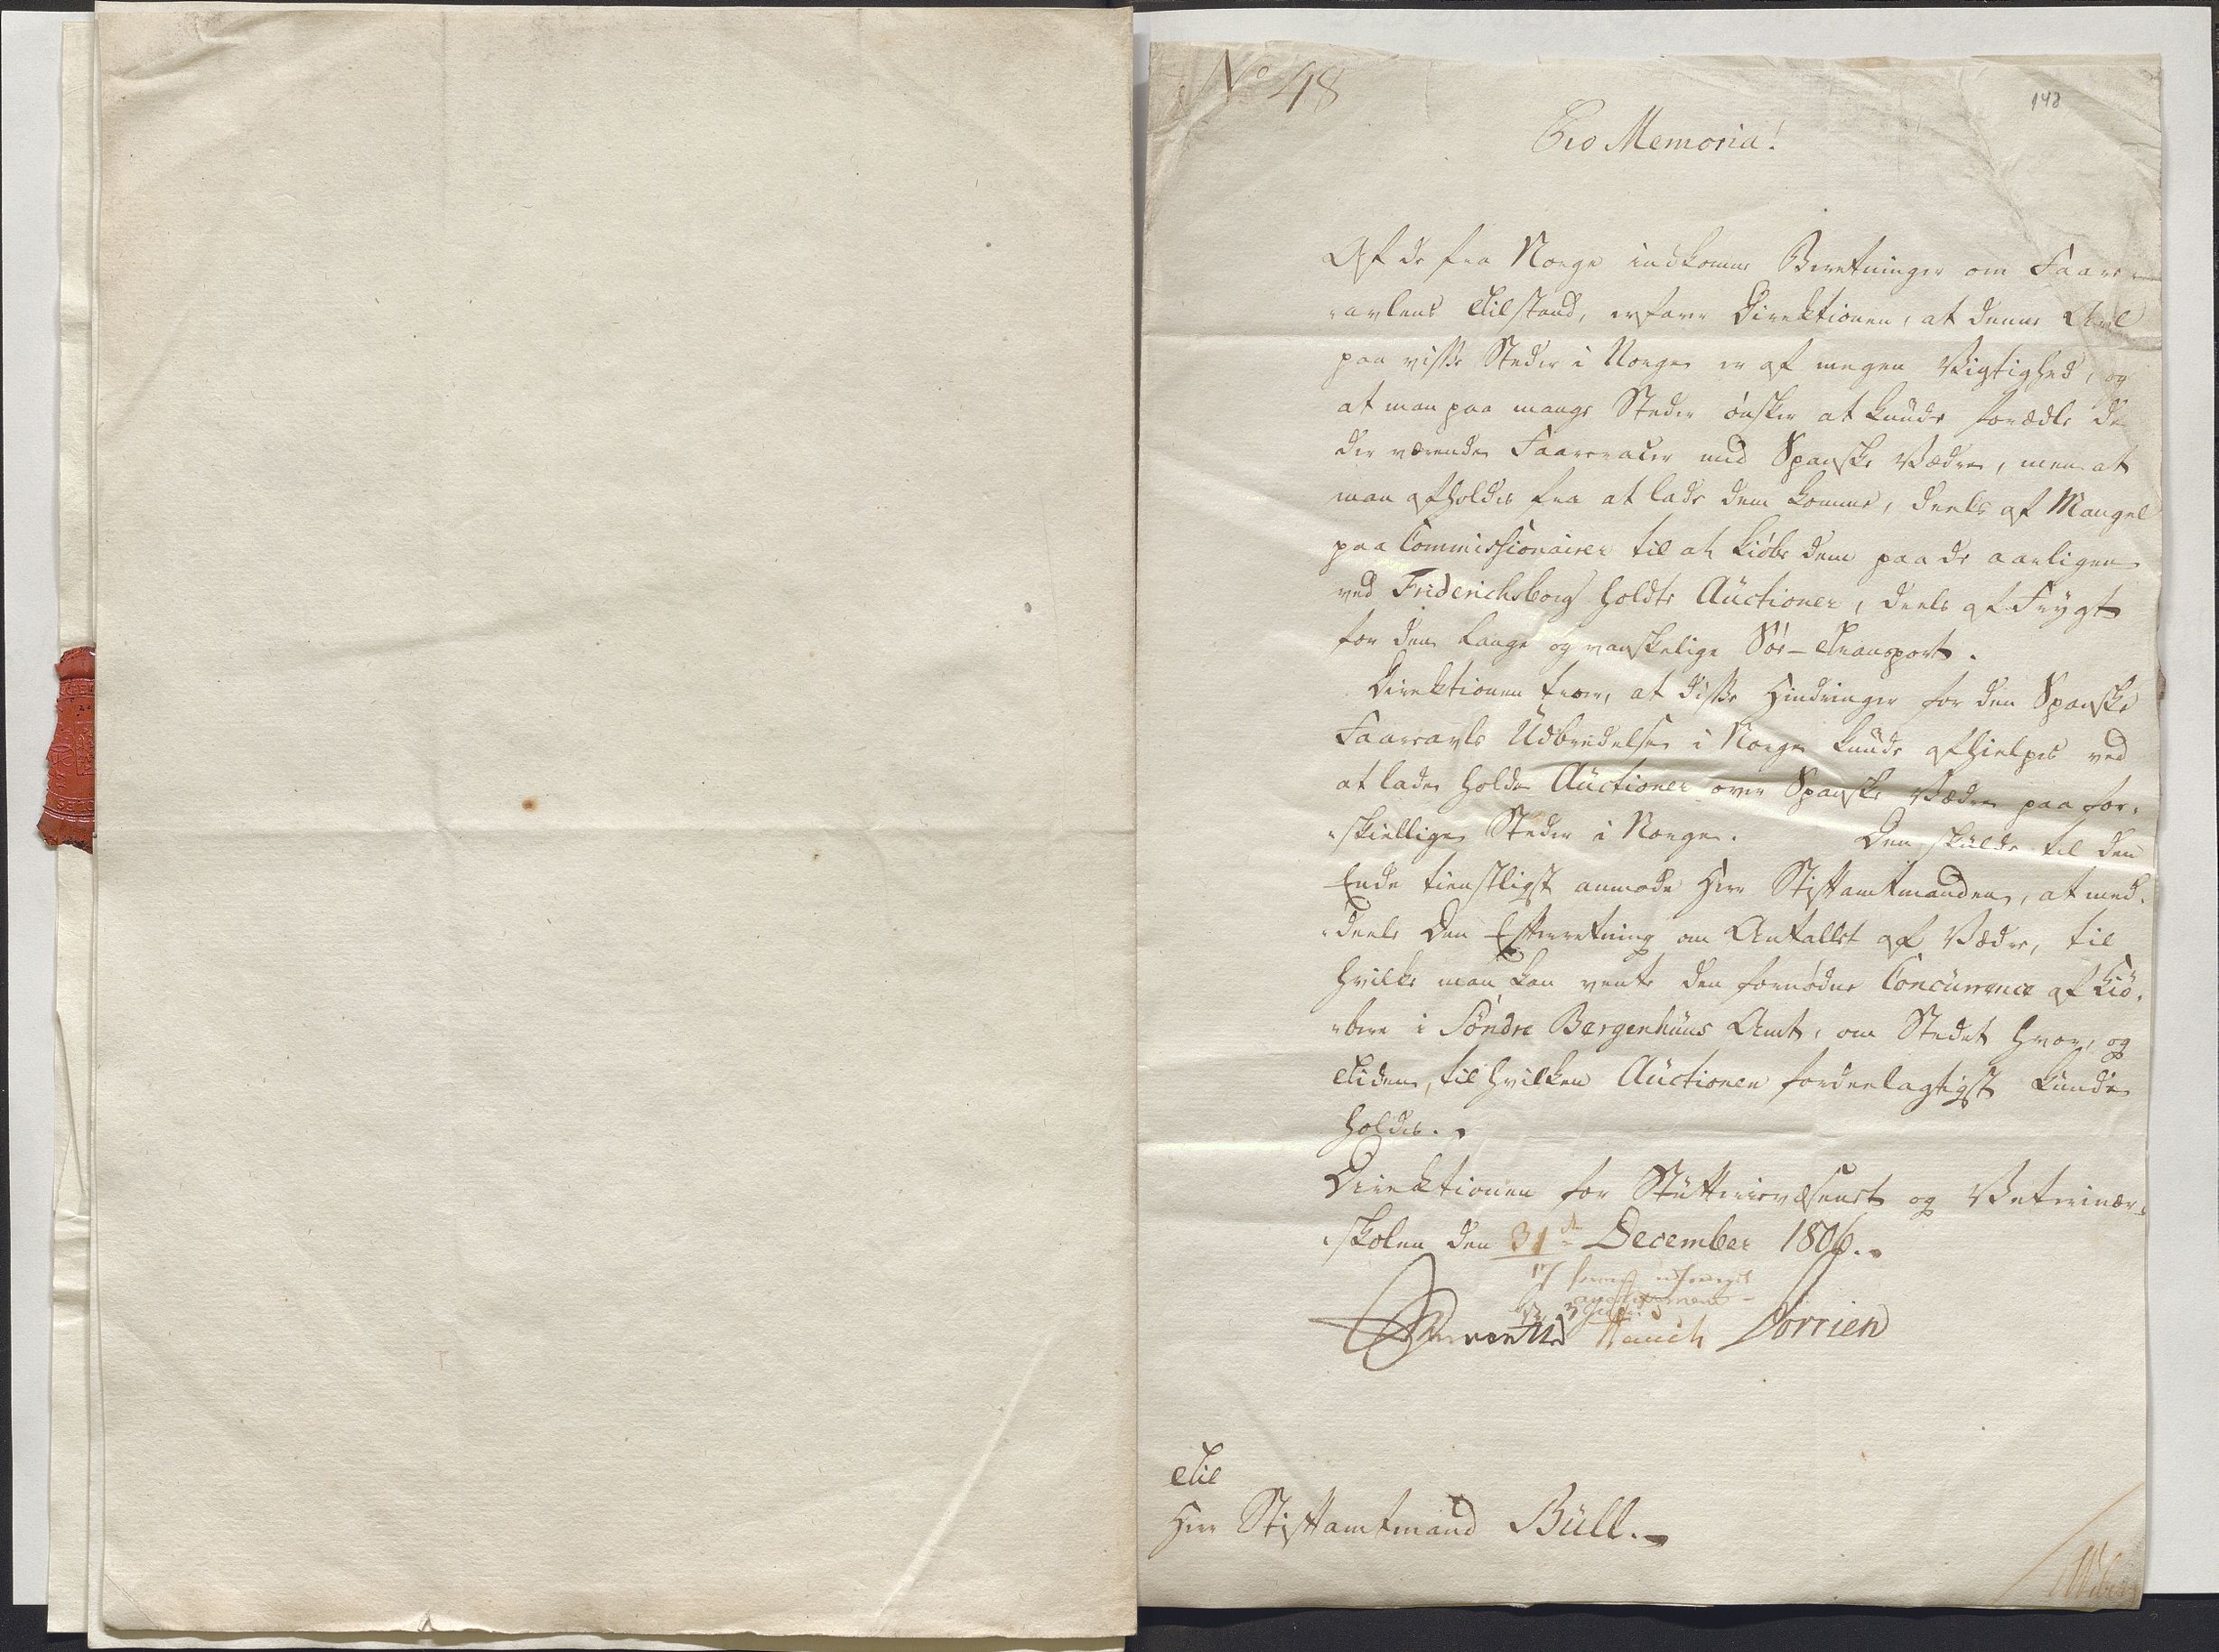 No 48
148
Pro Memoria!
Af de fra Norge indkomne Beretninger om Faare-
-avlens Tilstand, erfarer Direktionen, at denne Avl
paa visse Steder i Norge er af megen Vigtighed, og
at man paa mange Steder ønsker at kunde forædle de
der værende Faareracer med Spanske Vædre, men at
man afholdes fra at lade dem komme, deels af Mangel
paa Commissionairer til at kiøbe dem paa de aarligen
ved Friderichsborg holdte Auctioner, deels af Frygt
for den lange og vanskelige Söe-Transport.
Direktionen troer, at disse Hindringer for den Spanske
Faareavls Udbredelse i Norge kunde afhielpes ved
at lade holde Auctioner over Spanske Vædre paa for-
-skiellige Steder i Norge. Den skulde til den
Ende tienstligst anmode Herr Stiftamtmanden, at med-
-deele Den Efterretning om Antallet af Vædre, til
hvilke man kan vente den fornødne Concurrence af Kiö-
-bere i Söndre Bergenhuus Amt, om Stedet hvor, og
Tiden, til hvilken Auctionen fordeelagtigst kunde
holdes.
Direktionen for Stutterievæsenet og Veterinær-
-skolen den 31de December 1806.
Hauch Dorrien
Til
Herr Stiftamtmand Bull.